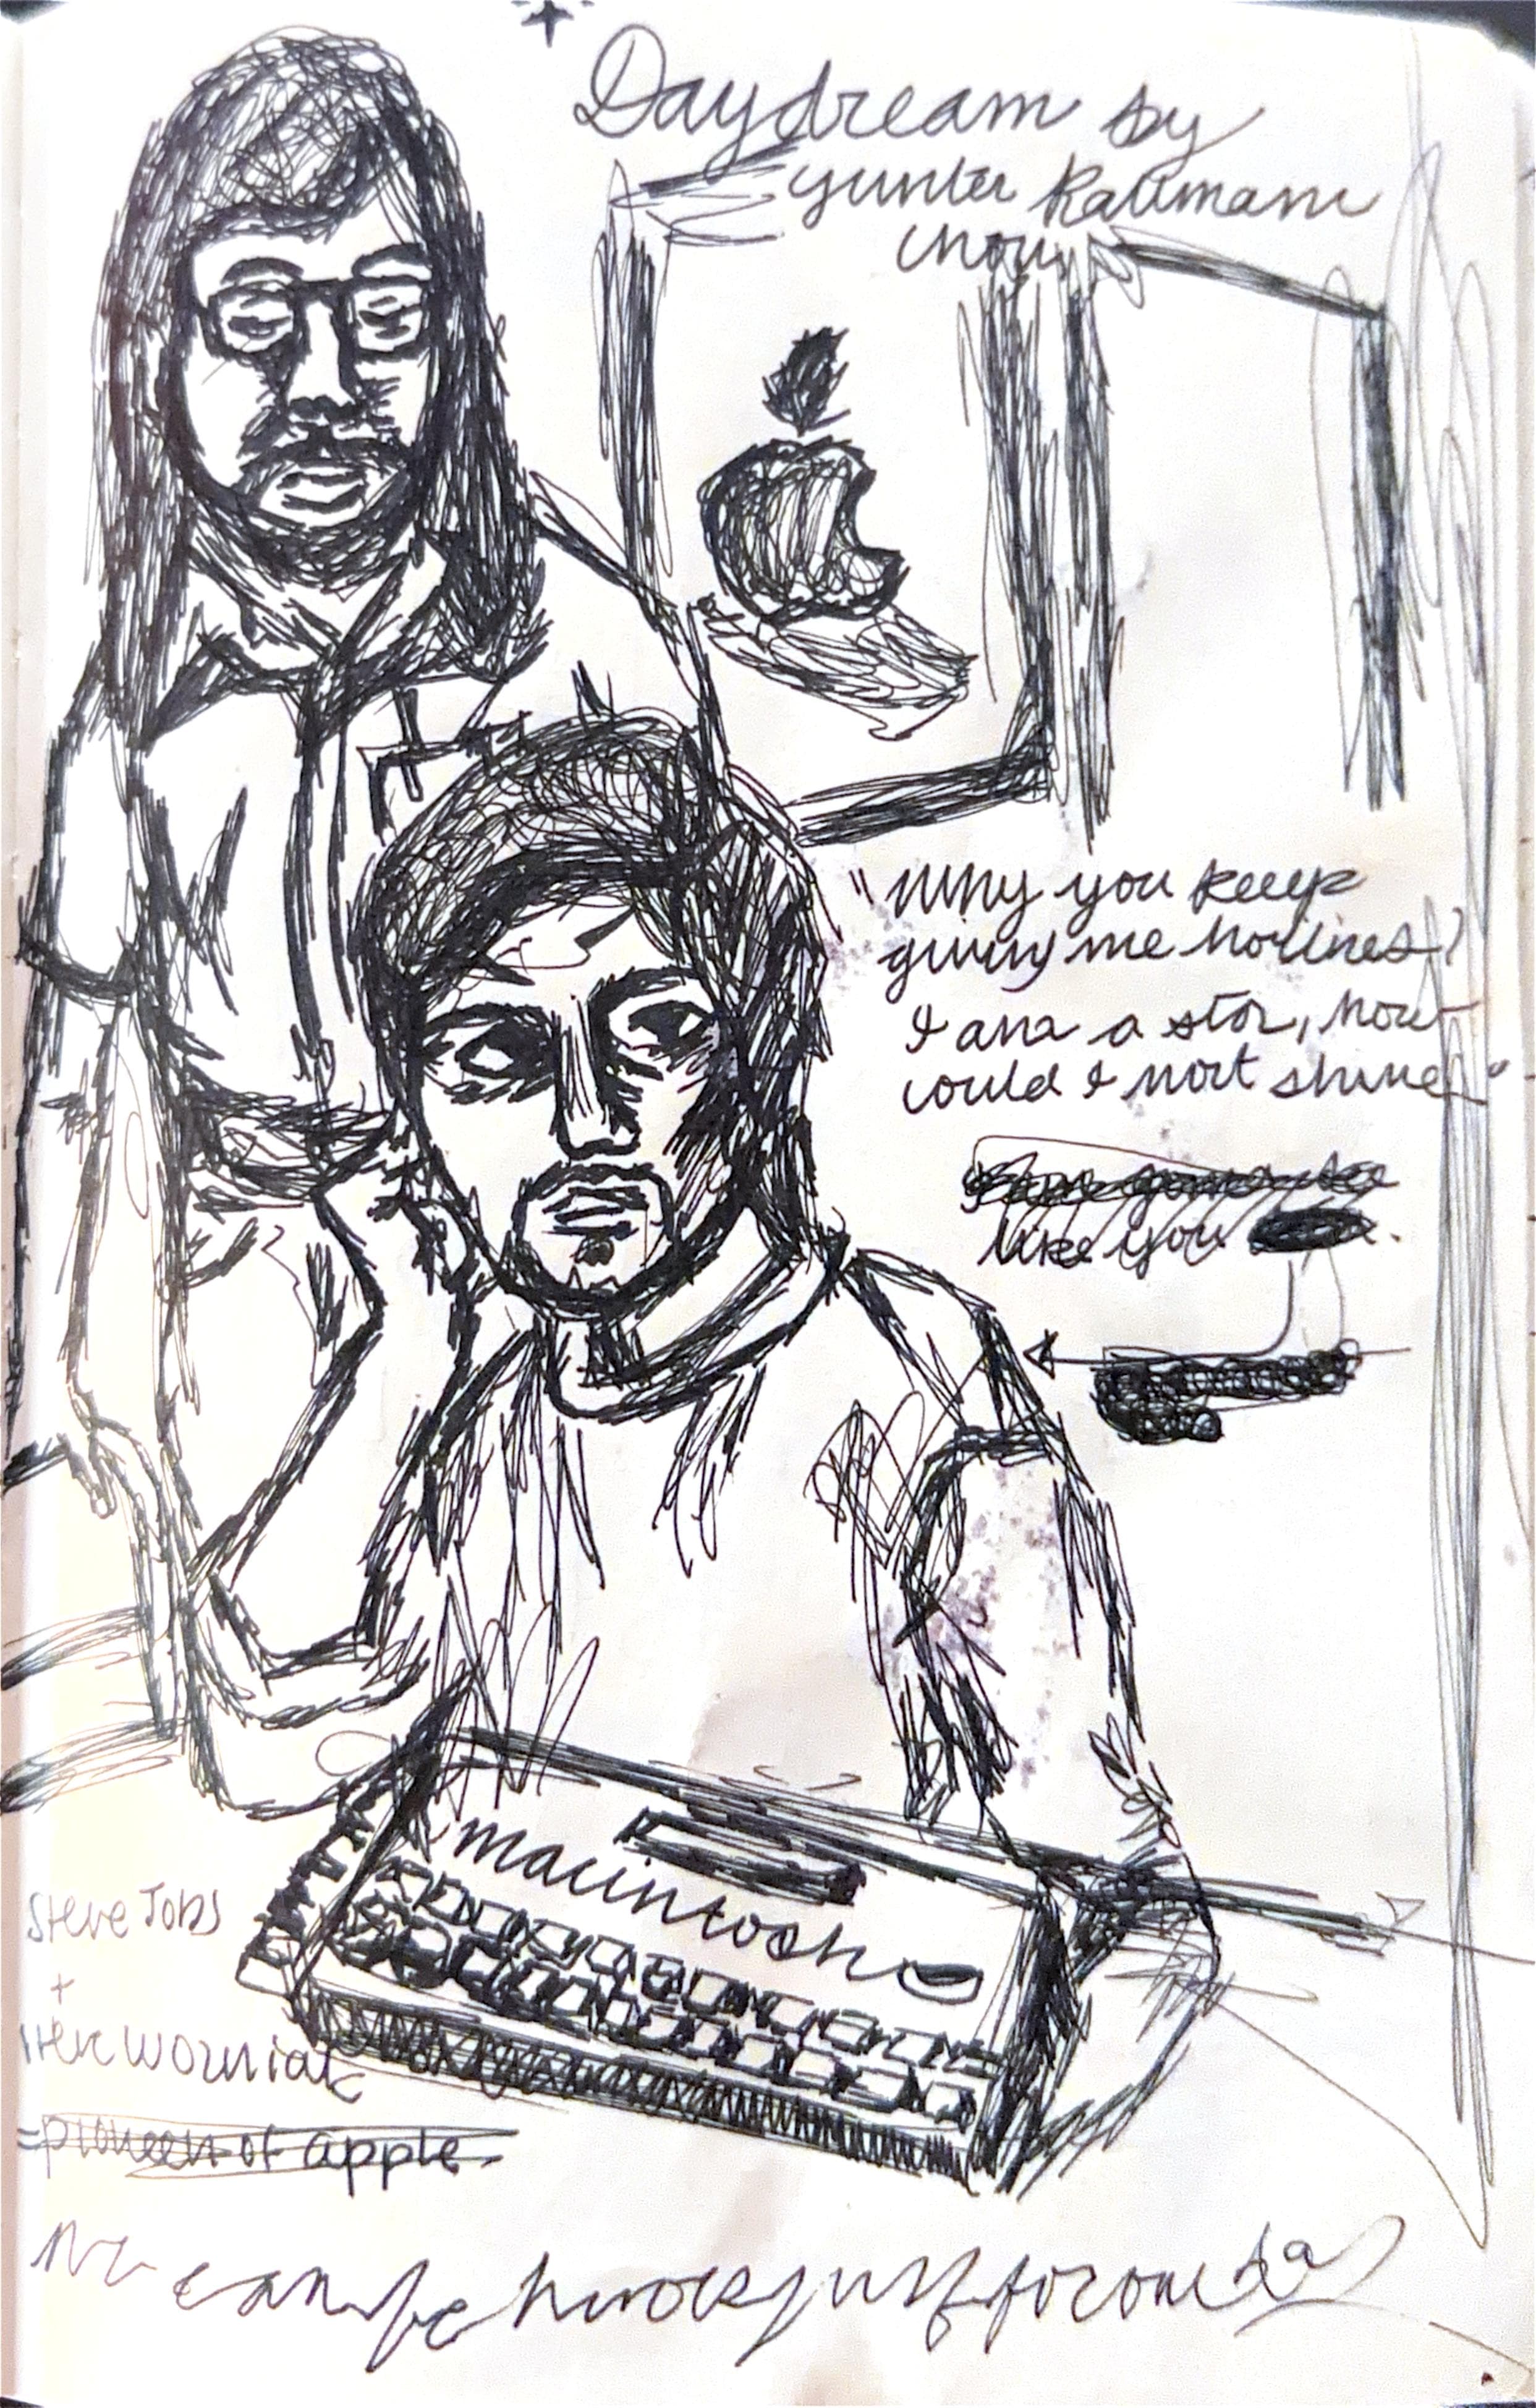 Daydream by
Gunter Kallmann
Choir
"Why you keep
giving me hotlines?
I am a star, how
could I not shine"
like you
macintosh
Steve Jobs
+
Steve Wozniak
=pioneers of apple.
We can be heroes just for one da